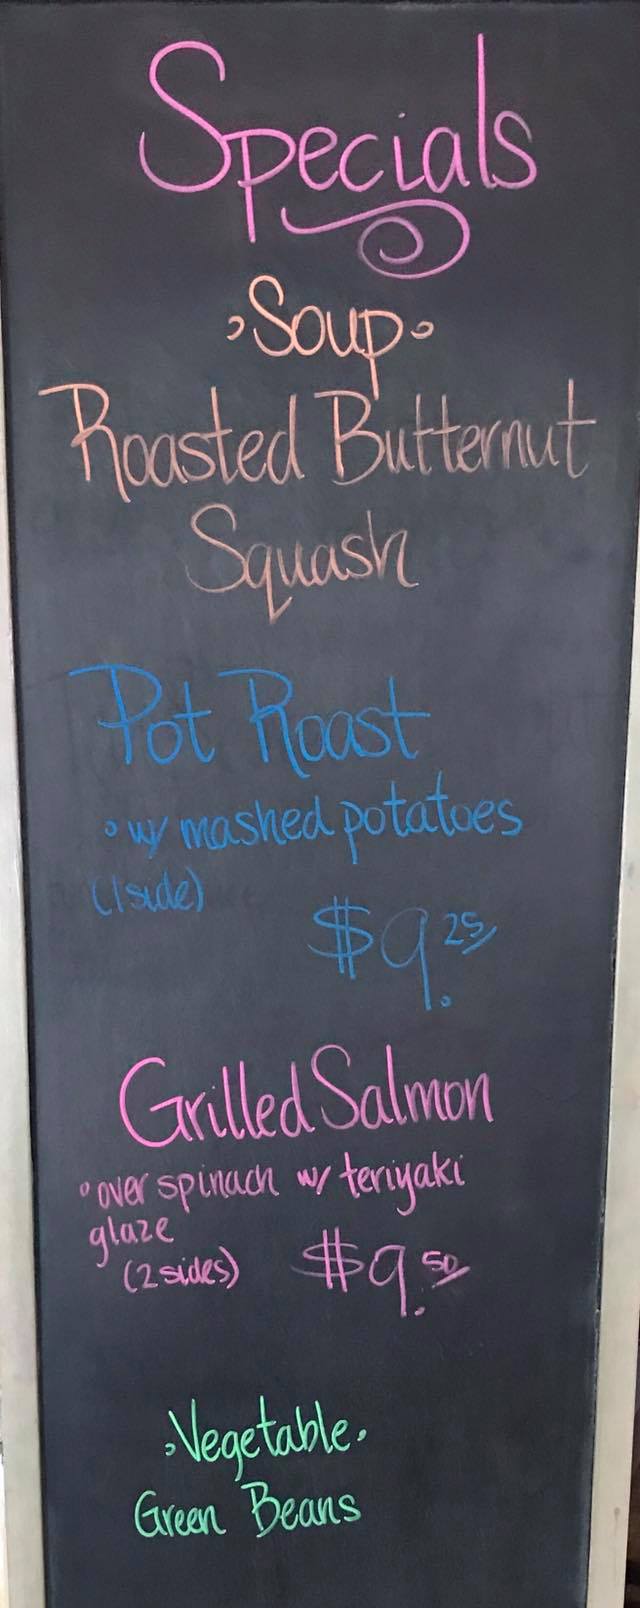 Specials
•Soup•
Roasted Butternut
Squash
Pot Roast
• w/ mashed potatoes
(1 side)
$9.25
Grilled Salmon
• over spinach w/ teriyaki
glaze
(2 sides) $9.50
•Vegetable•
Green Beans